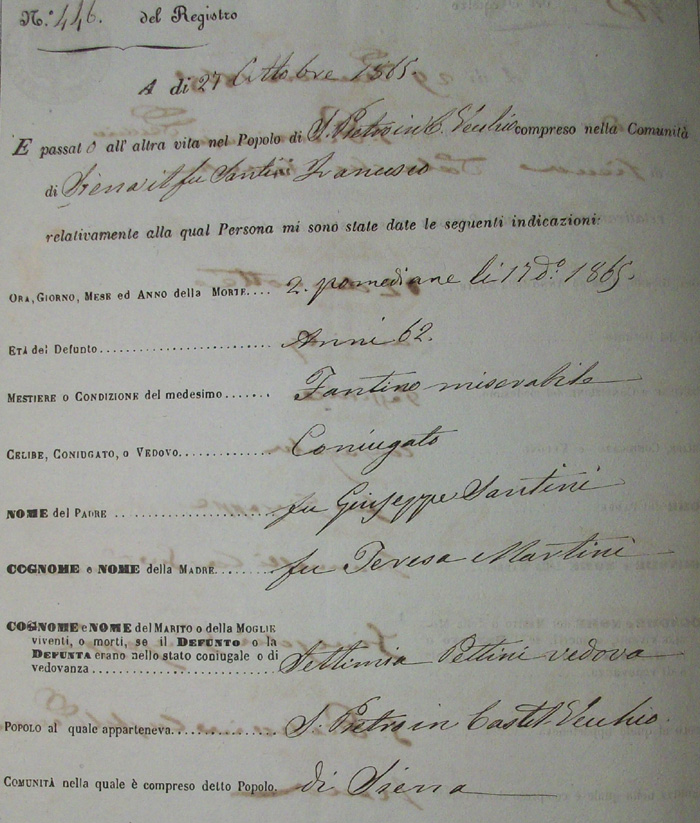 N.° 446. del Registro
A di 27 Ottobre 1865.
E passato all' altra vita nel Popolo di S. Pietro in C. Vecchio compreso nella Comunità
di Siena il fu Santini Francesco
relativamente alla qual Persona mi sono state date le seguenti indicazioni:
ORA, GIORNO, MESE ED ANNO della MORTE.... 2. pomediane li 17 d.° 1865.
ETÀ del DEFUNTO.................... Anni 62.
MESTIERE O CONDIZIONE del medesimo....... Fantino miserabile
CELIBE, CONIUGATO, O VEDOVO............. Coniugato
NOME del PADRE .................... fu Giuseppe Santini
COGNOME e NOME della MADRE........ fu Teresa Martini
COGNOME e NOME del MARITO o della MOGLIE
viventi, o morti, se il DEFUNTO o la
DEFUNTA erano nello stato coniugale o di
vedovanza........................ Settimia Pettini vedova
POPOLO al quale apparteneva............... S. Pietro in Castel Vecchio.
COMUNITÀ nella quale è compreso detto Popolo. di Siena